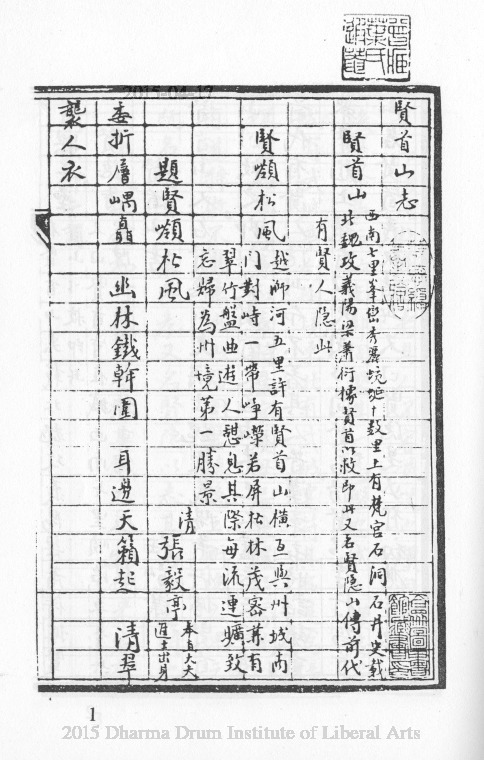 賢首山志
賢首山
西南七里峯巒秀麗蜿蜒十數里上有梵宮石洞石丹史載
北魏攻義陽梁蕭衍據賢首以救即此又名賢隱山傳前代
有賢人隱此
賢嶺松風
越溮河五里許有賢首山橫亙與州城南
門對峙一帶崢嶸若屏松林茂密兼有
翠竹盤曲遊人憩息其際每流連曠致
忘歸為州境第一勝景
題賢嶺松風
清 張毅亭
本直大夫
進士出身
委折層嵎矗 幽林鐵幹圍 耳邊天籟起 清翠
襲人衣
1
2015-04-17
2015 Dharma Drum Institute of Liberal Arts